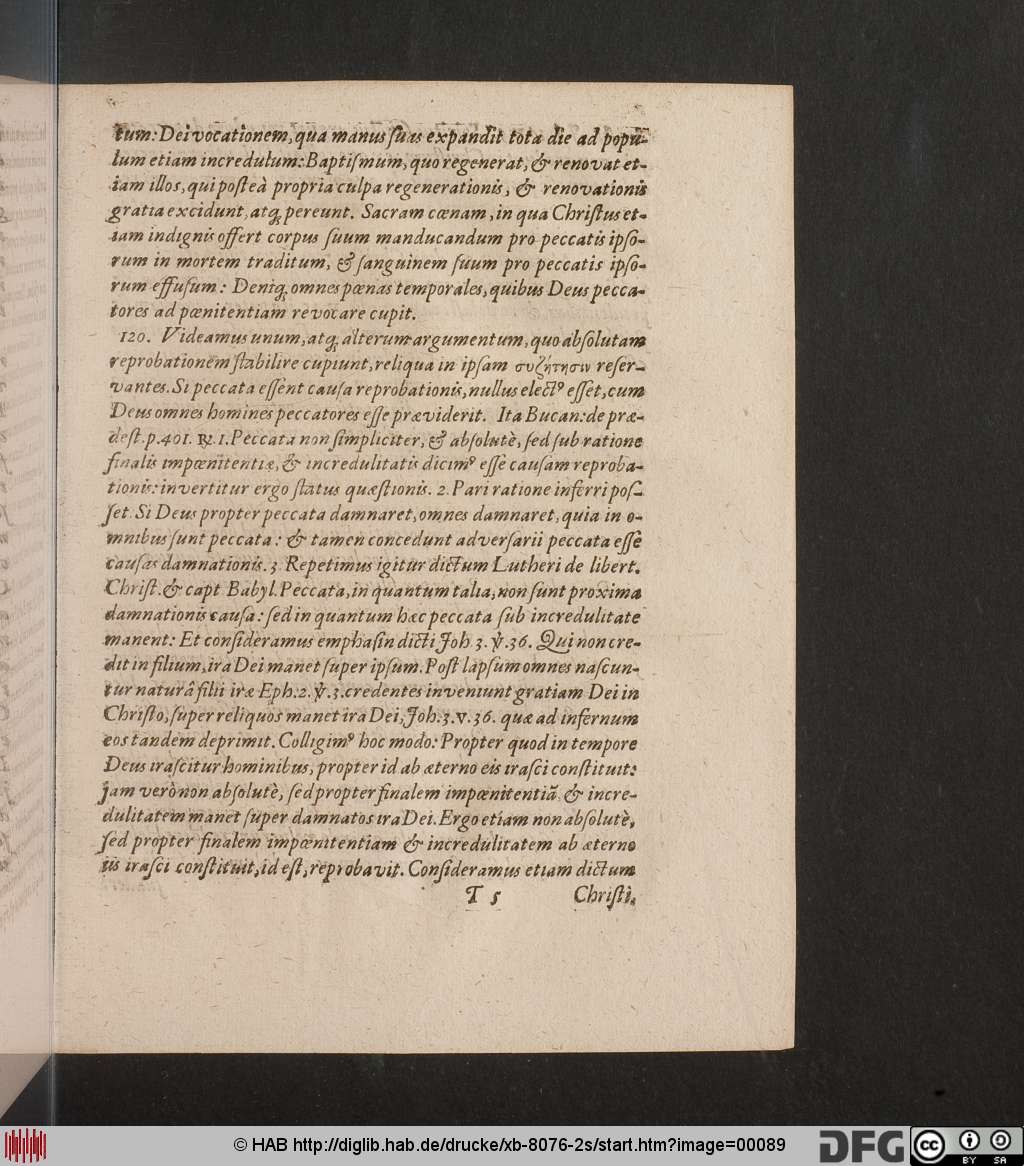 tum: Dei vocationem, qua manus ſuas expandit tota die ad popu-
lum etiam incredulum: Baptiſmum, quo regenerat, & renovat et-
iam illos, qui poſteà propria culpa regenerationis, & renovationis
gratia excidunt, atq; pereunt. Sacram cœnam, in qua Chriſtus et-
iam indignis offert corpus ſuum manducandum pro peccatis ipſo-
rum in mortem traditum, & ſanguinem ſuum pro peccatis ipſo-
rum effuſum: Deniq; omnes pœnas temporales, quibus Deus pecca-
tores ad pœnitentiam revocare cupit.
120. Videamus unum, atq; alterum argumentum, quo abſolutam
reprobationem ſtabilire cupiunt, reliqua in ipſam συζήτησιν reſer-
vantes. Si peccata eſſent cauſa reprobationis, nullus electꝰ eſſet, cum
Deus omnes homines peccatores eſſe præviderit. Ita Bucan: de præ-
deſt. p. 401. ℞. 1. Peccata non ſimpliciter, & abſolutè, ſed ſub ratione
finalis impœnitentiæ, & incredulitatis dicimꝰ eſſe cauſam reproba-
tionis: invertitur ergo ſtatus quæſtionis. 2. Pari ratione inferri poſ-
ſet. Si Deus propter peccata damnaret, omnes damnaret, quia in o-
mnibus ſunt peccata: & tamen concedunt adverſarii peccata eſſe
cauſas damnationis. 3. Repetimus igitur dictum Lutheri de libert.
Chriſt. & capt Babyl. Peccata, in quantum talia, non ſunt proxima
damnationis cauſa: ſed in quantum hæc peccata ſub incredulitate
manent: Et conſideramus emphaſin dicti Joh 3. ꝟ. 36. Qui non cre-
dit in filium, ira Dei manet ſuper ipſum. Poſt lapſum omnes naſcun-
tur naturâ filii iræ Eph: 2. ꝟ. 3. credentes inveniunt gratiam Dei in
Chriſto, ſuper reliquos manet ira Dei, Joh. 3. v. 36. quæ ad infernum
eos tandem deprimit. Colligimꝰ hoc modo: Propter quod in tempore
Deus iraſcitur hominibus, propter id ab æterno eis iraſci conſtituit:
jam verò non abſolutè, ſed propter finalem impœnitentiã & incre-
dulitatem manet ſuper damnatos ira Dei. Ergo etiam non abſolutè,
ſed propter finalem impœnitentiam & incredulitatem ab æterno
iis iraſci conſtituit, id eſt, reprobavit. Conſideramus etiam dictum
T 5 Chriſti,
© HAB http://diglib.hab.de/drucke/xb-8076-2s/start.htm?image=00089
DFG
cc BY SA